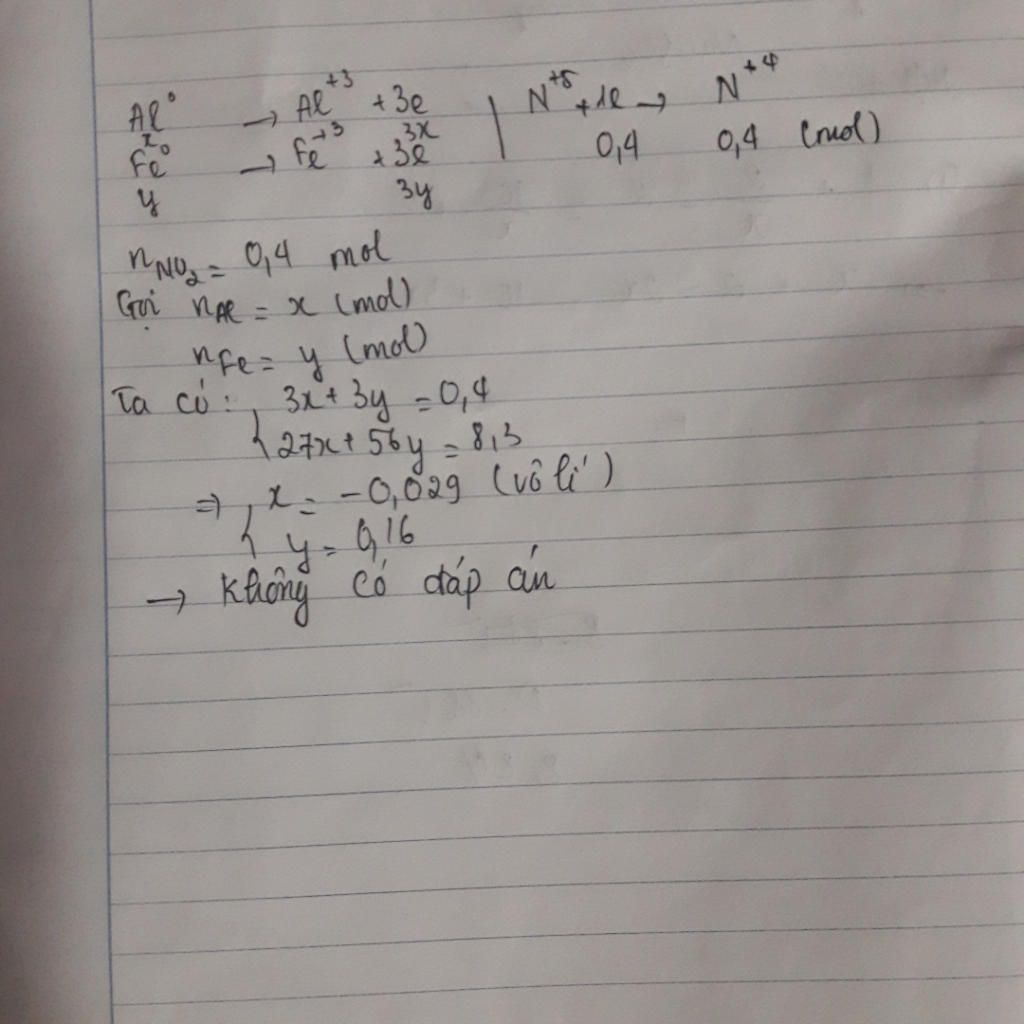 Al⁰ → Al⁺³ + 3e | N⁺⁵ + 1e → N⁺⁴
x 3x 0,4 0,4 (mol)
Fe⁰ → Fe⁺³ + 3e
y 3y
nNO₂ = 0,4 mol
Gọi nAl = x (mol)
nFe = y (mol)
Ta có: { 3x + 3y = 0,4
27x + 56y = 8,3
⇒ { x = -0,029 (vô lí)
y = 0,16
→ Không có đáp án